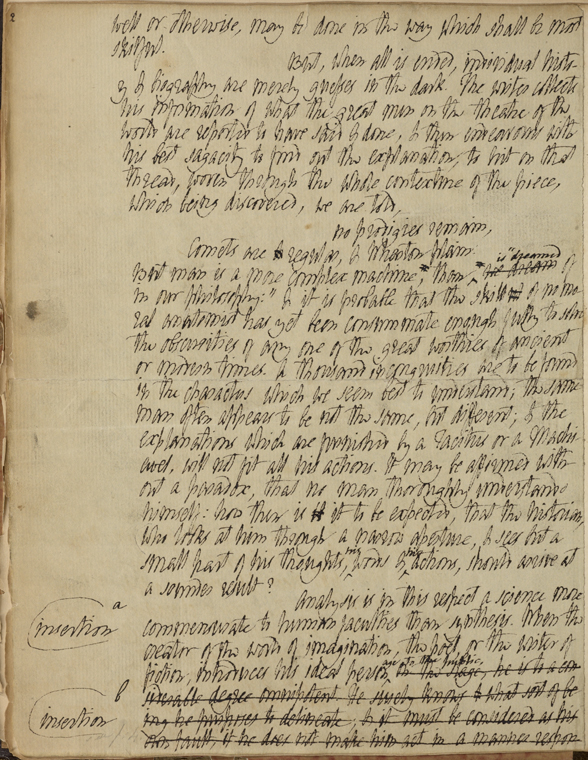 2
well or otherwise, may be done in the way which shall be most
skilful.
But, when all is ended, individual histo-
ry & biography are merely guesses in the dark. The writer collects
his information of what the great men on the theatre of the
world are reported to have said & done, & then endeavours with
his best sagacity to find out the explanation, to hit on that
thread, woven through the whole contexture of the piece,
which being discovered, we are told,
no prodigies remain,
Comets are regular, & Wharton plain.
But man is a more complex machine, than is "dreamed of
in our philosophy:" & it is probable that the skill of no mo-
ral anatomist has yet been consummate enough fully to solve
the obscurities of any one of the great worthies of ancient
or modern times. A thousand incongruities are to be found
in the characters which we seem best to understand; the same
man often appears to be not the same, but different; & the
explanations which are furnished by a Tacitus or a Machi-
avel, will not fit all his actions. It may be affirmed with-
out a paradox, that no man thoroughly understands
himself: how then is it to be expected, that the historian,
who looks at him through a narrow aperture, & sees but a
small part of his thoughts, his words & his actions, should arrive at
a sounder result?
Analysis is in this respect a science more
insertion a
commensurate to human faculties than synthesis. When the
creator of the world of imagination, the poet, or the writer of
fiction, introduces his ideal person to the public, on the stage, he is to a con-
insertion b
siderable degree omniscient. He surely knows what sort of be-
ing he purposes to delineate; & it must be considered as his
own fault, if he does not make him act in a manner respon